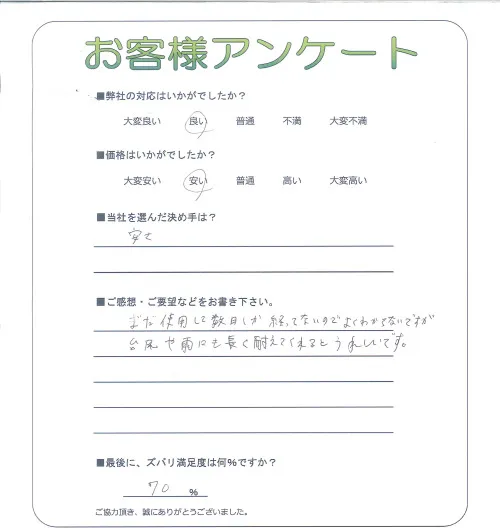 お客様アンケート
■弊社の対応はいかがでしたか?
大変良い 良い 普通 不満 大変不満
■価格はいかがでしたか?
大変安い 安い 普通 高い 大変高い
■当社を選んだ決め手は?
安さ
■ご感想・ご要望などをお書き下さい。
まだ使用して数日しか経ってないのでよくわかてないですが
台風や雨にも長く耐えてくれるとうれしいです。
■最後に、ズバリ満足度は何%ですか?
70 %
ご協力頂き、誠にありがとうございました。